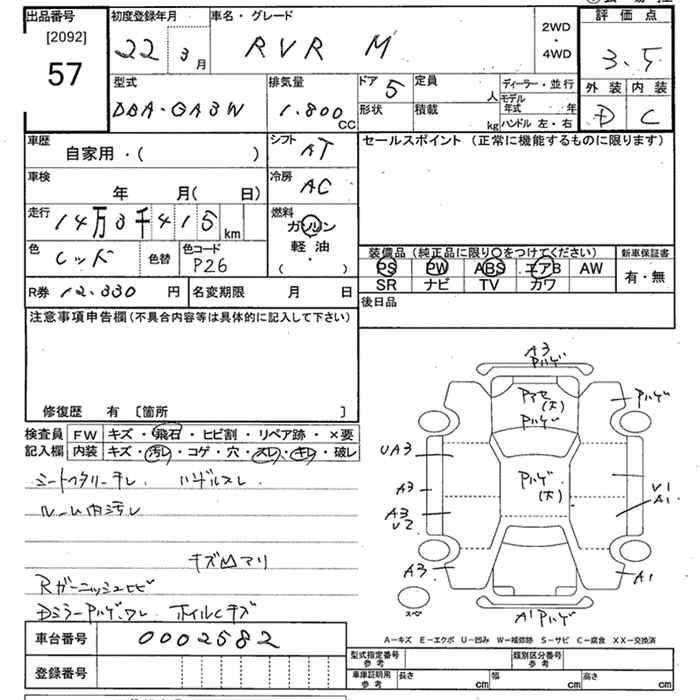 出品番号 初度登録年月 車名・グレード 2WD・4WD 評価点
[2092] 57 22 3月 RVR M 3.5
型式 排気量 ドア 5 定員 人 ディーラー・並行 外装 内装
DBA-GA3W 1.800 CC 形状 積載 kg モデル年式 年 ハンドル 左・右 D C
車歴 自家用・( ) シフト AT セールスポイント (正常に機能するものに限ります)
車検 年 月( 日) 冷房 AC
走行 14万0千415 km 燃料 ガソリン 軽油 ・ ( )
色 レッド 色替 色コード P26 装備品 (純正品に限り○をつけてください) 新車保証書
PS PW ABS エアB AW 有・無
SR ナビ TV カワ
R券 12.330 円 名変期限 月 日 後日品
注意事項申告欄 (不具合内容等は具体的に記入して下さい)
修復歴 有 〔箇所 〕
検査員 FW キズ・飛石・ヒビ割・リペア跡・×要
記入欄 内装 キズ・汚レ・コゲ・穴・スレ・キレ・破レ
ハンドルスレ
ルーム内汚レ
キズ凹アリ
Rガーニッシュヒビ
Dミラーハゲ、ワレ ホイルCキズ
A3
Pハゲ
(大)
Pハゲ
Pハゲ
UA3
Pハゲ
(大)
A3
U1
A1
A3
U2
A3
A1
スペ
A1 Pハゲ
A−キズ E−エクボ U−凹み W−補修跡 S−サビ C−腐食 XX−交換済
車台番号 0002582
登録番号
型式指定番号 参考 類別区分番号 参考
車庫証明用 参考 長さ cm 幅 cm 高さ cm